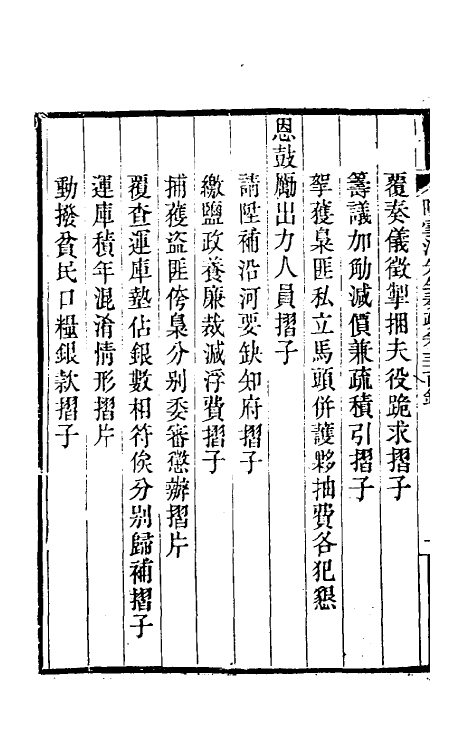 覆奏儀徵掣捆夫役跪求摺子
籌議加觔減價兼疏積引摺子
拏獲梟匪私立馬頭併護夥抽費各犯懇
恩鼓勵出力人員摺子
請陞補沿河要缺知府摺子
繳鹽政養廉裁減浮費摺子
捕獲盜匪侉梟分别委審懲辦摺片
覆查運庫墊佔銀數相符俟分别歸補摺子
運庫積年混淆情形摺片
動撥貧民口糧銀款摺子